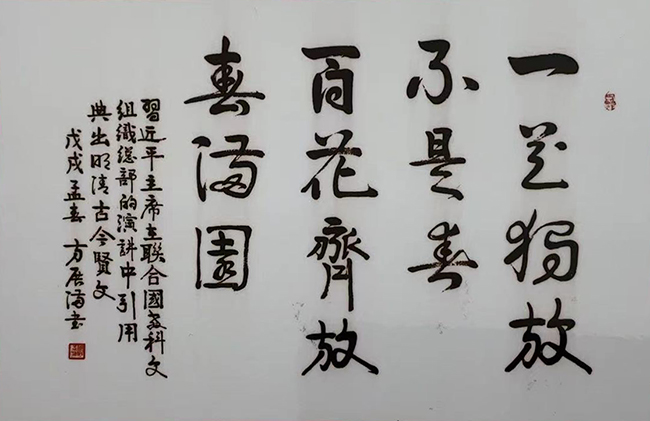 一花獨放
不是春
百花齊放
春滿園
習近平主席在聯合國教科文
組織總部的演讲中引用
典出明清古今賢文
戊戌孟春 方